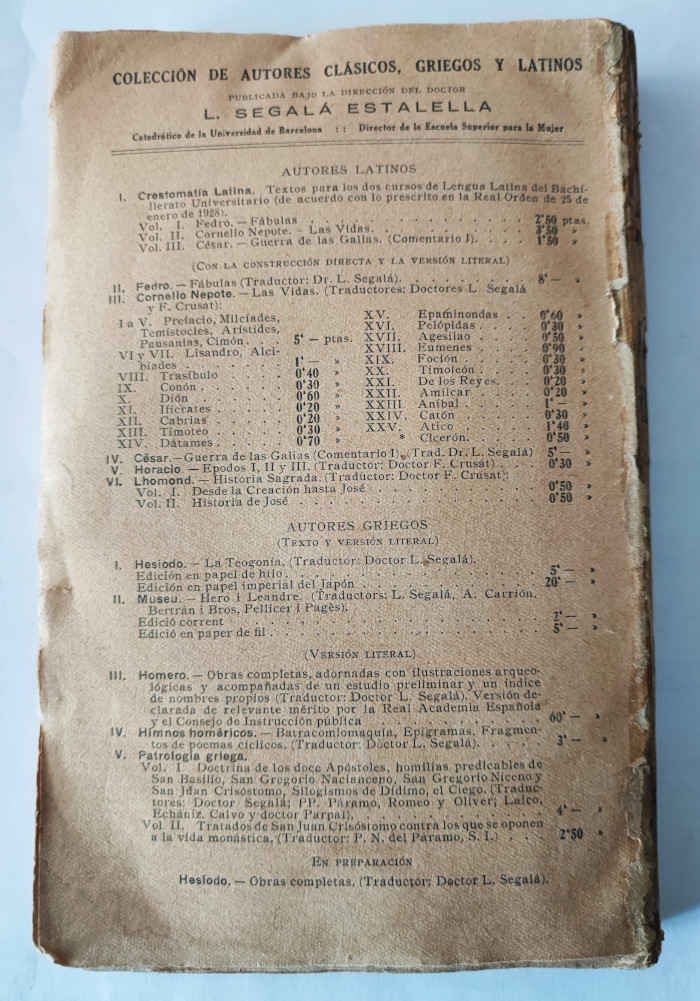 COLECCIÓN DE AUTORES CLÁSICOS, GRIEGOS Y LATINOS
PUBLICADA BAJO LA DIRECCIÓN DEL DOCTOR
L. SEGALÁ ESTALELLA
Catedrático de la Universidad de Barcelona :: Director de la Escuela Superior para la Mujer
AUTORES LATINOS
I. Crestomatía Latina. Textos para los dos cursos de Lengua Latina del Bachi-
llerato Universitario (de acuerdo con lo prescrito en la Real Orden de 25 de
enero de 1928).
Vol. I. Fedro.—Fábulas . . . . . 2'50 ptas.
Vol. II. Cornelio Nepote.—Las Vidas. . . . . . 3'50 »
Vol. III. César.—Guerra de las Galias. (Comentario I). . . . . 1'50 »
(CON LA CONSTRUCCIÓN DIRECTA Y LA VERSIÓN LITERAL)
II. Fedro.—Fábulas (Traductor: Dr. L. Segalá). . . . . . 8'— »
III. Cornelio Nepote.—Las Vidas. (Traductores: Doctores L. Segalá
y F. Crusat):
I a V. Prefacio, Milcíades,
Temístocles, Arístides,
Pausanias, Cimón. . . . 5'— ptas.
VI y VII. Lisandro, Alci-
bíades . . . . . 1'— »
VIII. Trasíbulo . . . . . 0'40 »
IX. Conón . . . . . 0'30 »
X. Dión . . . . . 0'60 »
XI. Ifícrates . . . . . 0'20 »
XII. Cabrias . . . . . 0'20 »
XIII. Timoteo . . . . . 0'30 »
XIV. Dátames . . . . . 0'70 »
XV. Epaminondas . . 0'60 »
XVI. Pelópidas . . . 0'30 »
XVII. Agesilao . . . 0'50 »
XVIII. Eumenes . . . 0'90 »
XIX. Foción . . . . 0'30 »
XX. Timoleón . . . 0'30 »
XXI. De los Reyes . . . 0'20 »
XXII. Amílcar . . . 0'20 »
XXIII. Aníbal . . . . 1'— »
XXIV. Catón . . . . 0'30 »
XXV. Atico . . . . 1'40 »
* Cicerón. . . . 0'50 »
IV. César.—Guerra de las Galias (Comentario I). (Trad. Dr. L. Segalá) 5'— »
V. Horacio.—Epodos I, II y III. (Traductor: Doctor F. Crusat) . . . 0'30 »
VI. Lhomond.—Historia Sagrada. (Traductor: Doctor F. Crusat):
Vol. I. Desde la Creación hasta José . . . . . 0'50 »
Vol. II. Historia de José . . . . . 0'50 »
AUTORES GRIEGOS
(TEXTO Y VERSIÓN LITERAL)
I. Hesíodo.—La Teogonía. (Traductor: Doctor L. Segalá).
Edición en papel de hilo . . . . . 5'— »
Edición en papel imperial del Japón . . . . . 20'— »
II. Museu.—Hero i Leandre. (Traductors: L. Segalá, A. Carrión,
Bertrán i Bros, Pellicer i Pagès).
Edició corrent . . . . . 2'— »
Edició en paper de fil . . . . . 5'— »
(VERSIÓN LITERAL)
III. Homero.—Obras completas, adornadas con ilustraciones arqueo-
lógicas y acompañadas de un estudio preliminar y un índice
de nombres propios (Traductor: Doctor L. Segalá). Versión de-
clarada de relevante mérito por la Real Academia Española
y el Consejo de Instrucción pública . . . . . 60'— »
IV. Himnos homéricos.—Batracomiomaquia, Epigramas, Fragmen-
tos de poemas cíclicos. (Traductor: Doctor L. Segalá). . . . . 3'— »
V. Patrología griega.
Vol. I. Doctrina de los doce Apóstoles, homilías predicables de
San Basilio, San Gregorio Nacianceno, San Gregorio Niceno y
San Juan Crisóstomo, Silogismos de Dídimo, el Ciego. (Traduc-
tores: Doctor Segalá; PP. Páramo, Romeo y Oliver; Laico,
Echániz, Calvo y doctor Parpal). . . . . 4'— »
Vol. II. Tratados de San Juan Crisóstomo contra los que se oponen
a la vida monástica. (Traductor: P. N. del Páramo, S. I.) . . . 2'50 »
EN PREPARACIÓN
Hesíodo.—Obras completas. (Traductor: Doctor L. Segalá).